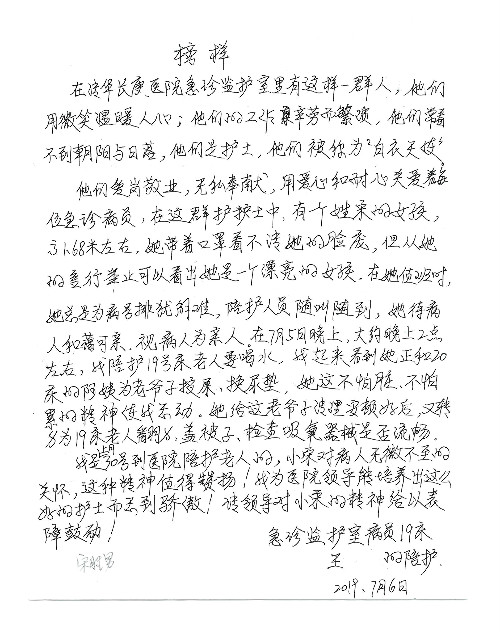 榜样
在清华长庚医院急诊监护室里有这样一群人，他们
用微笑温暖人心；他们的工作辛劳而繁琐，他们常看
不到朝阳与日落，他们是护士，他们被称为“白衣天使”
他们爱岗敬业，无私奉献，用爱心和耐心关爱着每
位急诊病员，在这群护士中，有个姓宋的女孩，
高1.68米左右，她带着口罩看不清她的脸庞，但从她
的言行举止可以看出她是一个漂亮的女孩．在她值班时，
她总是为病号排忧解难，陪护人员随叫随到，她待病
人和蔼可亲．视病人为亲人．在7月5日晚上，大约晚上2点
左右，我陪护19号床老人要喝水，我起来看到她正和20
床的阿姨为老爷子接尿、换尿垫，她这不怕脏、不怕
累的精神使我感动．她给这老爷子清理妥顿好后，又转
身为19床老人翻身，盖被子，检查吸氧器械是否流畅．
我是30号到医院陪护老人的，小宋对病人无微不至的
关怀，这种精神值得赞扬！我为医院领导能培养出这么
好的护士而感到骄傲！请领导对小宋的精神给以表
障鼓励！
急诊监护室病员19床
王 的陪护．
2019．7月6日